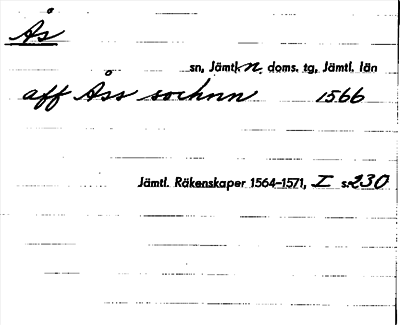 Ås
sn, Jämtl. n. doms. tg, Jämtl. län
aff Åss sochnn 1566
Jämtl. Räkenskaper 1564–1571, I s. 230